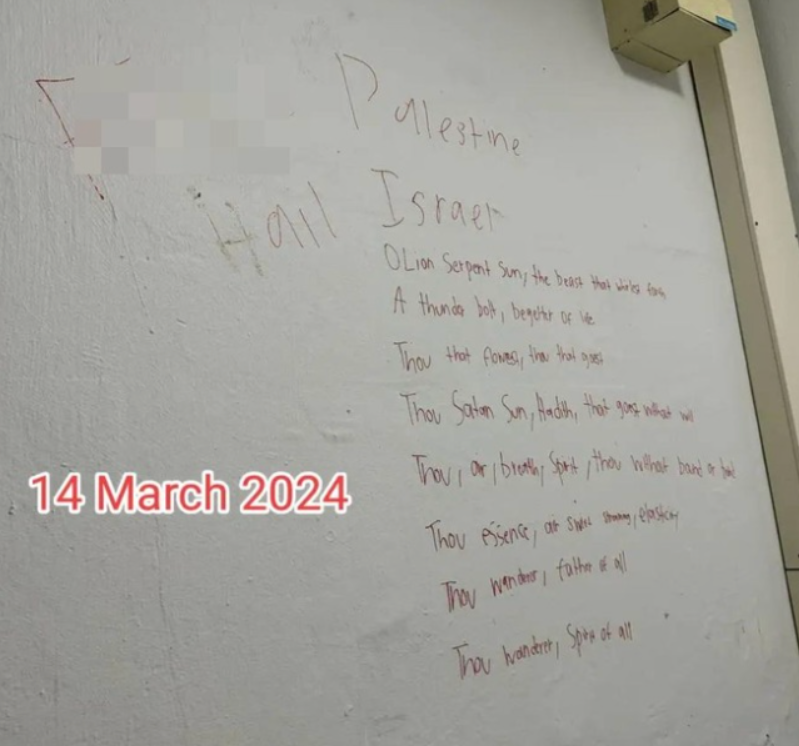 Palestine
Hail Israel
O Lion Serpent Sun, the beast that whirlest forth
A thunder bolt, begetter of life
Thou that flowest, thou that goest
Thou Satan Sun, Hadith, that goest without will
Thou, air, breath, spirit, thou without band or
Thou essence, air swift streaming, elasticity
Thou wanderer, father of all
Thou wanderer, Spirit of all
14 March 2024